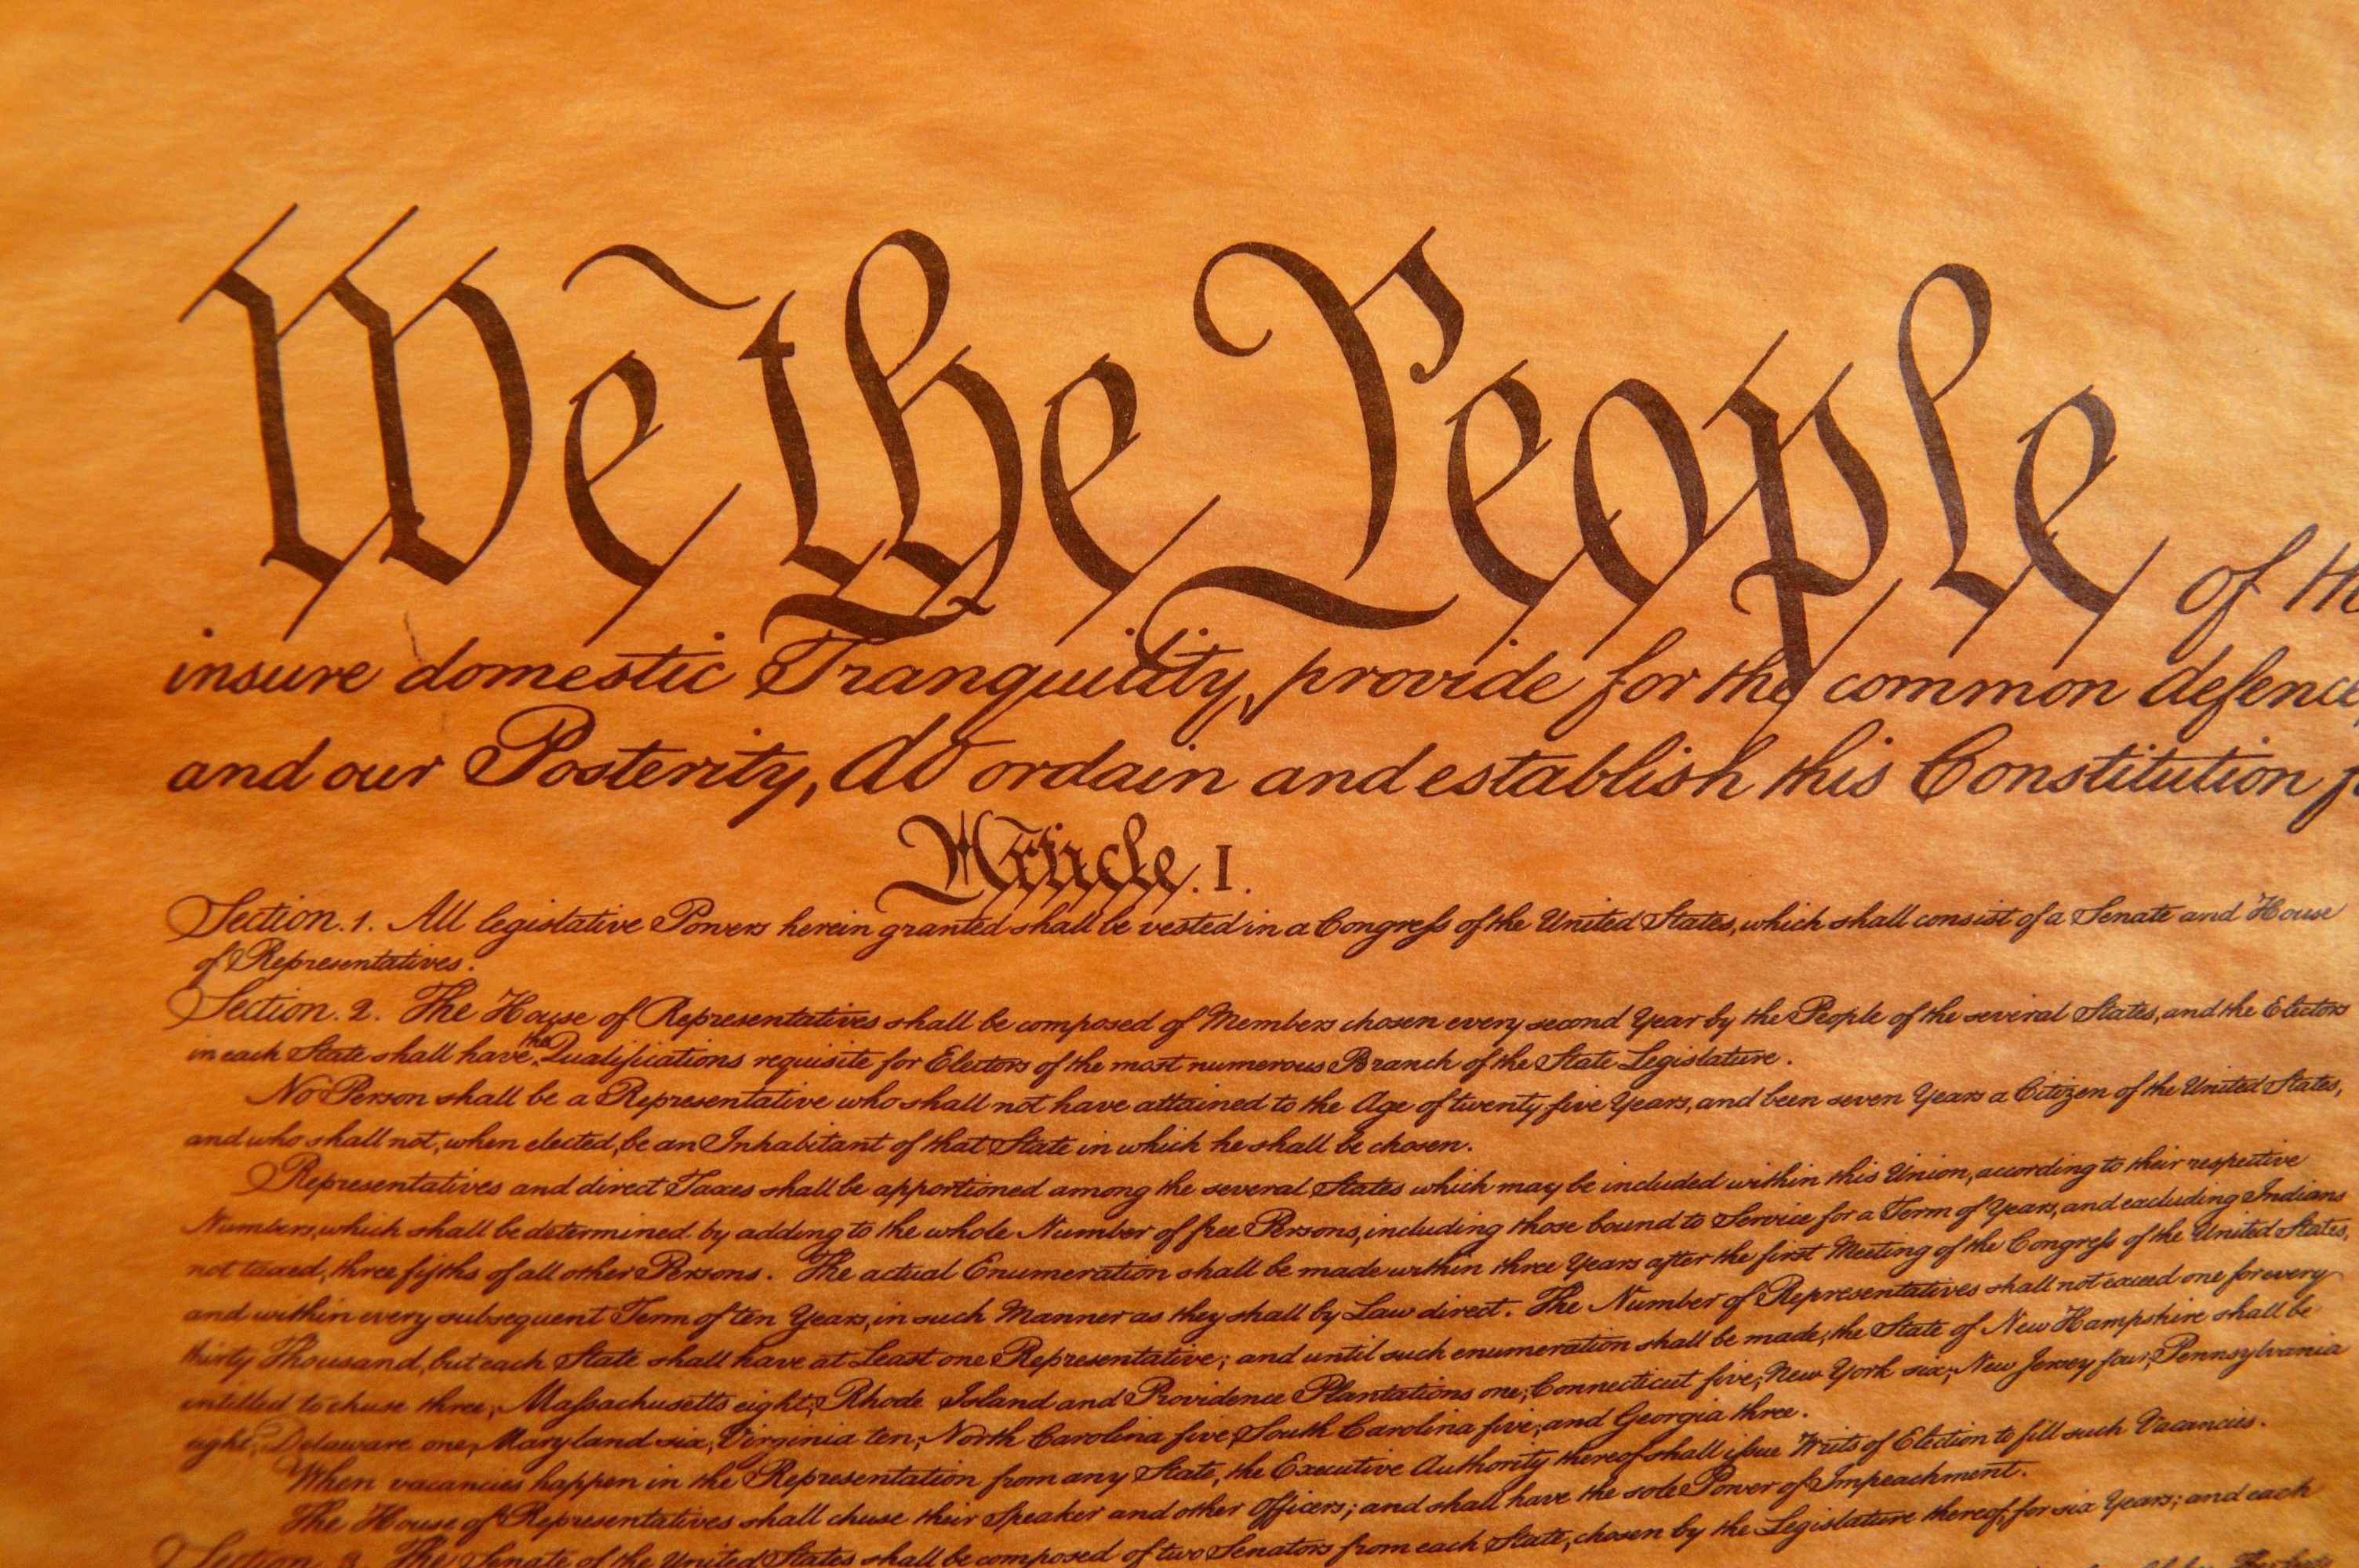 We the People of th
insure domestic Tranquility, provide for the common defence,
and our Posterity, do ordain and establish this Constitution f
Article. I.
Section. 1. All legislative Powers herein granted shall be vested in a Congress of the United States, which shall consist of a Senate and House
of Representatives.
Section. 2. The House of Representatives shall be composed of Members chosen every second Year by the People of the several States, and the Electors
in each State shall have the Qualifications requisite for Electors of the most numerous Branch of the State Legislature.
No Person shall be a Representative who shall not have attained to the Age of twenty five Years, and been seven Years a Citizen of the United States,
and who shall not, when elected, be an Inhabitant of that State in which he shall be chosen.
Representatives and direct Taxes shall be apportioned among the several States which may be included within this Union, according to their respective
Numbers, which shall be determined by adding to the whole Number of free Persons, including those bound to Service for a Term of Years, and excluding Indians
not taxed, three fifths of all other Persons. The actual Enumeration shall be made within three Years after the first Meeting of the Congress of the United States,
and within every subsequent Term of ten Years, in such Manner as they shall by Law direct. The Number of Representatives shall not exceed one for every
thirty Thousand, but each State shall have at Least one Representative; and until such enumeration shall be made, the State of New Hampshire shall be
entitled to chuse three, Massachusetts eight, Rhode Island and Providence Plantations one, Connecticut five, New York six, New Jersey four, Pennsylvania
eight, Delaware one, Maryland six, Virginia ten, North Carolina five, South Carolina five, and Georgia three.
When vacancies happen in the Representation from any State, the Executive Authority thereof shall issue Writs of Election to fill such Vacancies.
The House of Representatives shall chuse their Speaker and other Officers; and shall have the sole Power of Impeachment.
Section. 3. The Senate of the United States shall be composed of two Senators from each State, chosen by the Legislature thereof, for six Years; and each